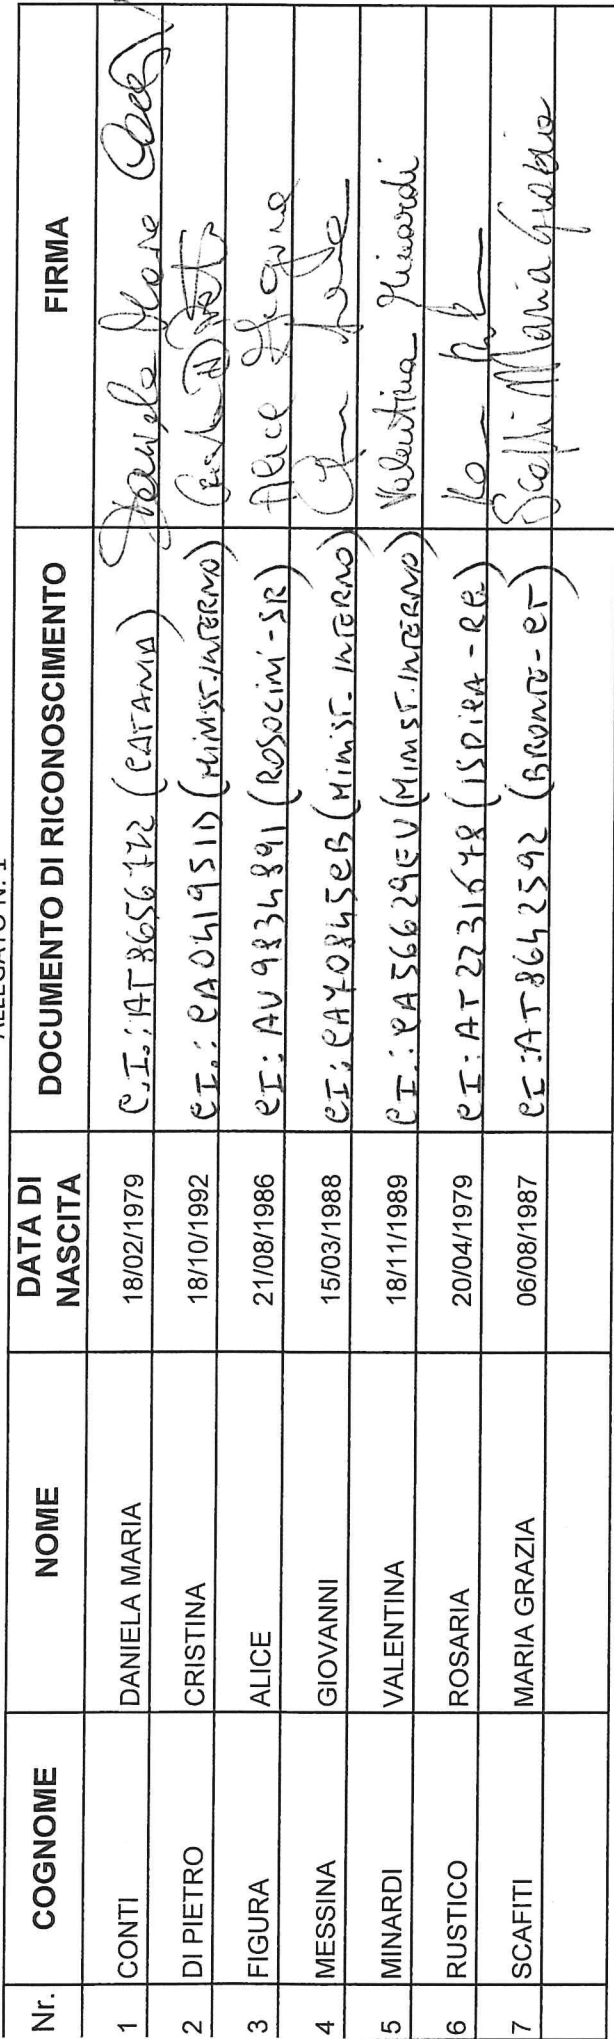 ALLEGATO N. 1
Nr. COGNOME NOME DATA DI NASCITA DOCUMENTO DI RICONOSCIMENTO FIRMA
1 CONTI DANIELA MARIA 18/02/1979 C.I.: AT8656772 (CATANIA) Daniela Maria Conti
2 DI PIETRO CRISTINA 18/10/1992 CI.: CA04195ID (MINIST. INTERNO)
3 FIGURA ALICE 21/08/1986 CI: AU9834891 (ROSOLINI-SR) Alice Figura
4 MESSINA GIOVANNI 15/03/1988 CI: CA70845CB (MINIST. INTERNO)
5 MINARDI VALENTINA 18/11/1989 CI.: CA56629EV (MINIST. INTERNO) Valentina Minardi
6 RUSTICO ROSARIA 20/04/1979 CI: AT2231678 (ISPICA-RG)
7 SCAFITI MARIA GRAZIA 06/08/1987 CI: AT8642592 (BRONTE-CT) Scafiti Maria Grazia